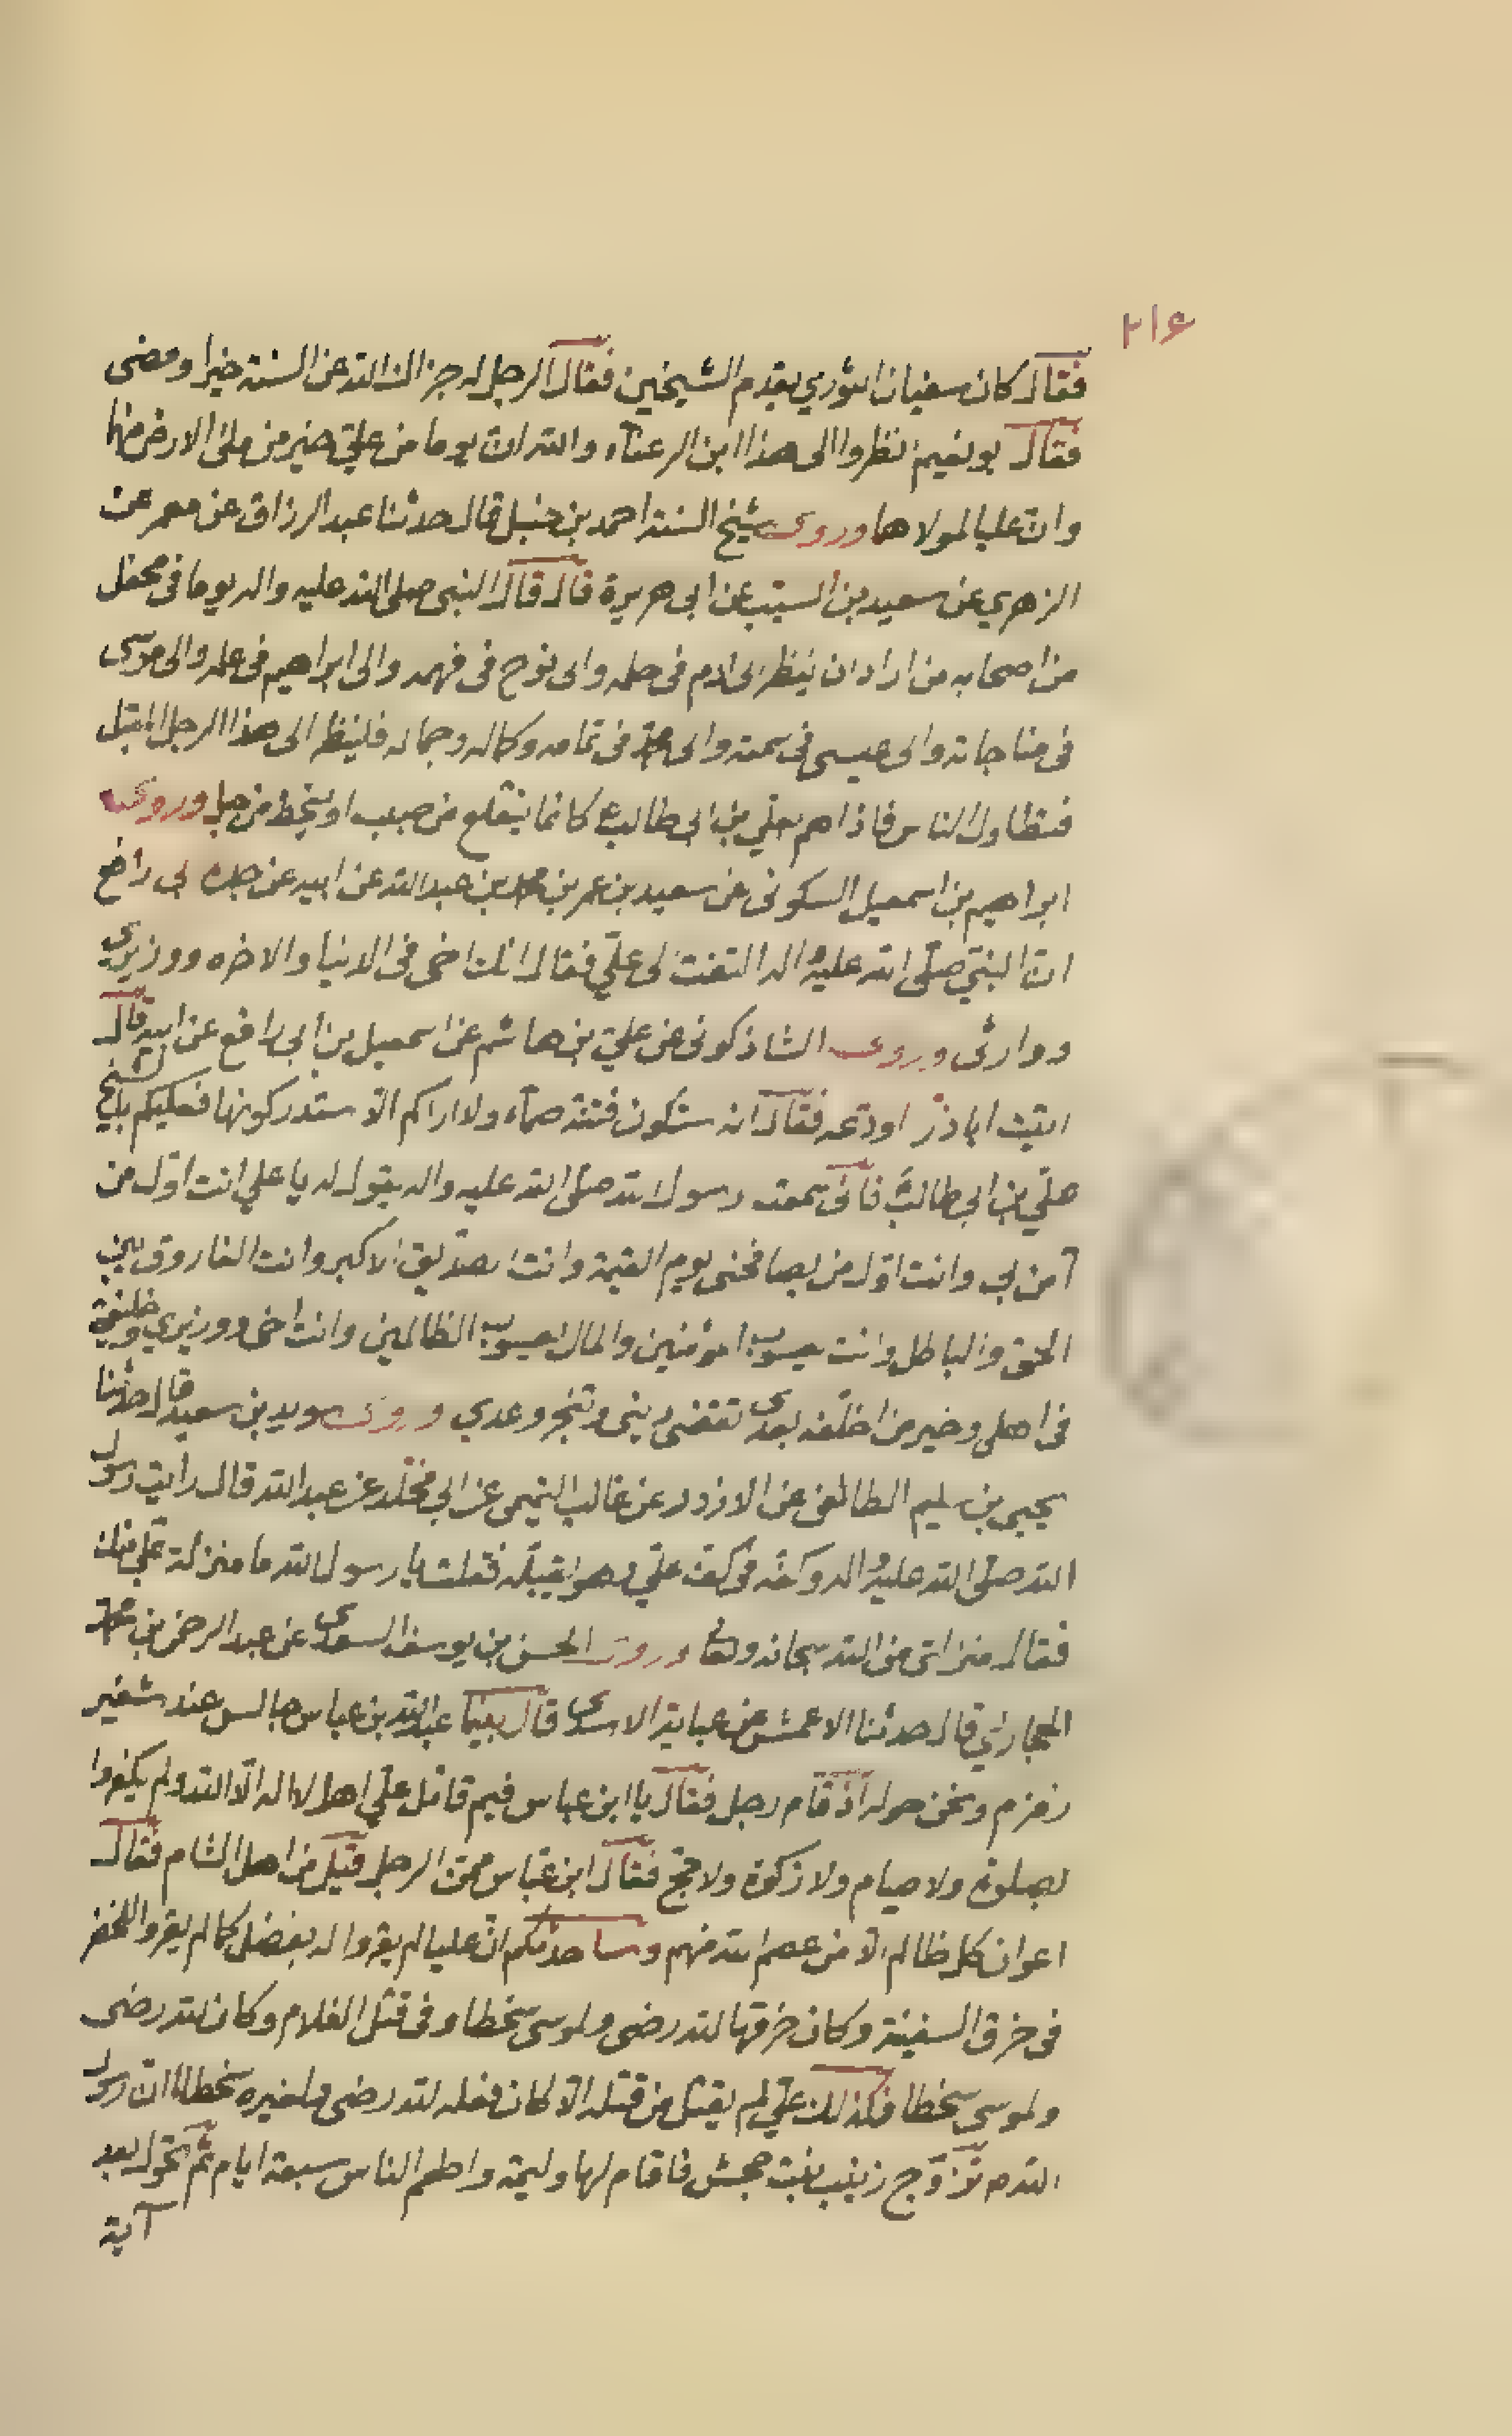 ٢١٤
فقال كان سفيان الثوري يقدم الشيخين فقال الرجل له جزاك الله عن السنة خيرا ومضى
فقال بو نعيم انظروا الى هذا ابن الرعناء والله ان يوما من علي خير من ملئ الارض منهما
وان عليا لمولاهما وروى شيخ السنة احمد بن حنبل قال حدثنا عبد الرزاق عن معمر عن
الزهري عن سعيد بن المسيب عن ابى هريرة قال قال النبى صلى الله عليه واله يوما فى محفل
من اصحابه من اراد ان ينظر الى ادم فى حلمه والى نوح فى فهمه والى ابراهيم فى علمه والى موسى
فى مناجاته والى عيسى فى سمته والى محمد فى تمامه وكماله وجماله فلينظر الى هذا الرجل المقبل
فتطاول الناس فاذا هم بعلي بن ابى طالب ع كانما ينقلع من صبب او ينحط من جبل وروى
ابراهيم بن اسمعيل السكونى عن سعيد بن عمر بن محمد بن عبد الله عن ابيه عن جده ابى رافع
ان النبي صلى الله عليه واله التفت الى علي فقال انك اخى فى الدنيا والاخره ووزيري
ووارثى وروى الشاذكونى عن علي بن هاشم عن اسمعيل بن ابى رافع عن ابيه قال
اتيت اباذر اودعه فقال انه ستكون فتنة صماء ولا اراكم الا ستدركونها فعليكم بالشيخ
علي بن ابى طالب فانى سمعت رسول الله صلى الله عليه واله يقول له يا علي انت اول من
آمن بى وانت اول من يصافحنى يوم القيمة وانت الصديق الاكبر وانت الفاروق بين
الحق والباطل وانت يعسوب المؤمنين والمال يعسوب الظالمين وانت اخى ووزيري وخليفتى
فى اهلى وخير من اخلفه بعدى تقضى دينى وتنجز وعدي وروى سويد بن سعيد قال حدثنا
يحيى بن سليم الطائفى عن الازور عن غالب التيمى عن ابى مخلد عن عبد الله قال رايت رسول
الله صلى الله عليه واله وكفه فى كف علي وهو يقبله فقلت يا رسول الله ما منزلة علي منك
فقال منزلتى من الله سبحانه وتعالى وروى الحسن بن يوسف السعدى عن عبد الرحمن بن محمد
المحاربي قال حدثنا الاعمش عن عباية الاسدى قال بينما عبد الله بن عباس جالس عند شفير
زمزم ونحن حوله اذ قام رجل فقال يا ابن عباس فيم قاتل علي اهل لا اله الا الله ولم يكفروا
بصلوة ولا صيام ولا زكوة ولا حج فقال ابن عباس ممن الرجل فقيل من اهل الشام فقال
اعوان كل ظالم الا من عصم الله منهم وساحدثكم ان عليا لم يقروا له بفضل كما لم يقروا للخضر
فى خرق السفينة وكان خرقها لله رضى ولموسى سخطا وفى قتل الغلام وكان لله رضى
ولموسى سخطا فكذلك علي لم يقتل من قتله الا كان فعله لله رضى ولغيره سخطا ان رسول
الله ص تزوج زينب بنت جحش فاقام لها وليمة واطعم الناس سبعة ايام ثم تحول بعد
آية